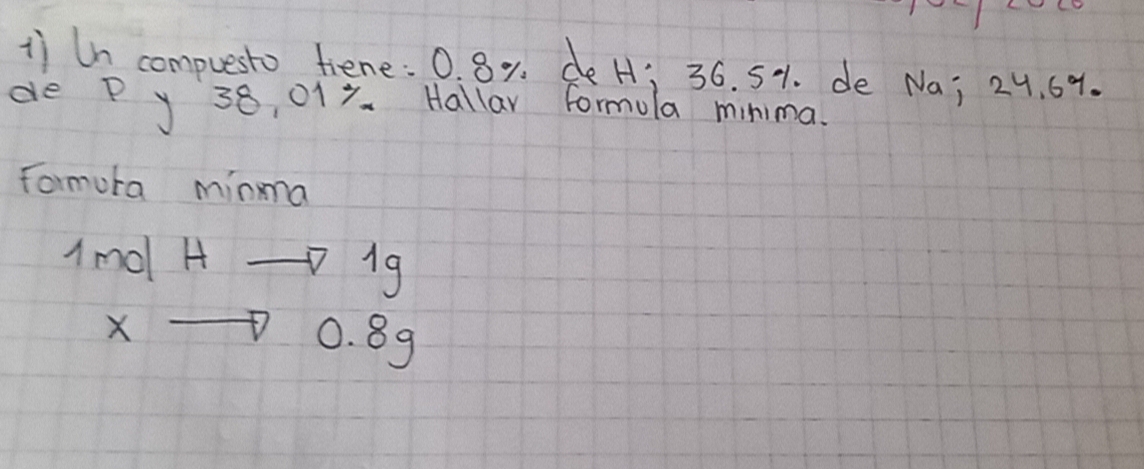 1) Un compuesto tiene: 0.8% de H; 36.5% de Na; 24.6%
de P y 38,01% Hallar formula minima.
Formula minma
1mol H → 1g
x → 0.8g